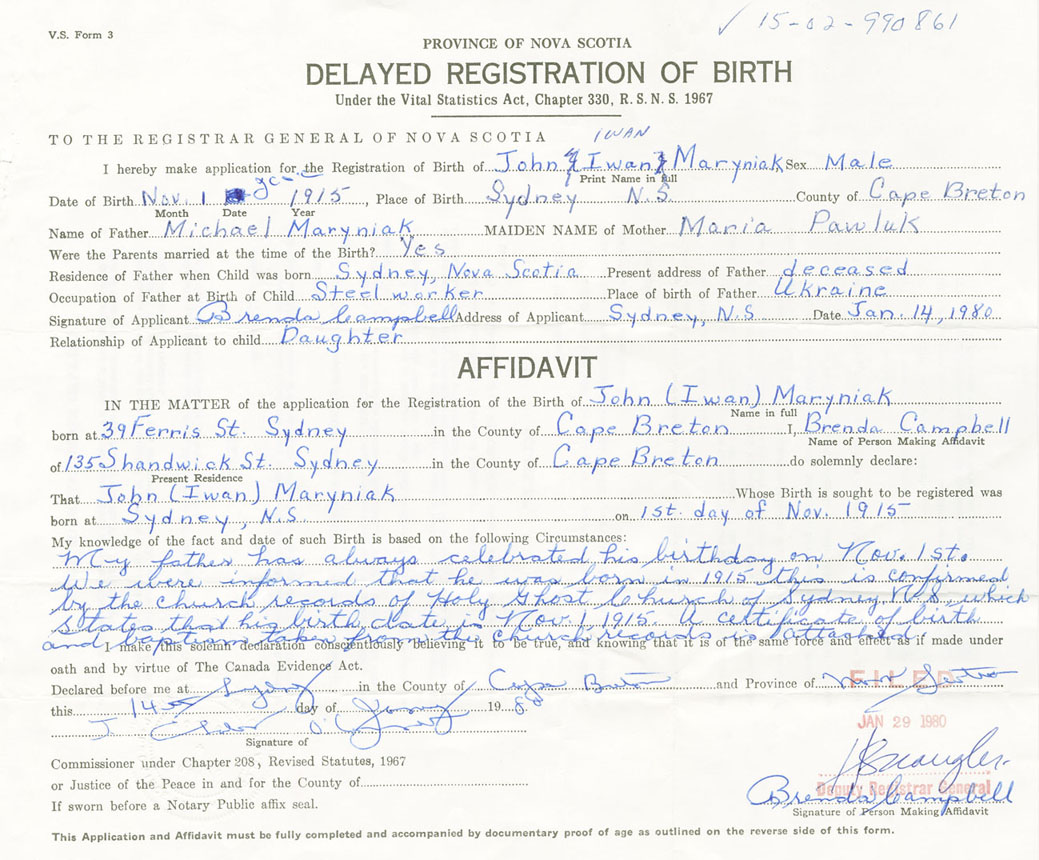 ✓ 15-02-990861
V.S. Form 3
PROVINCE OF NOVA SCOTIA
DELAYED REGISTRATION OF BIRTH
Under the Vital Statistics Act, Chapter 330, R. S. N. S. 1967
TO THE REGISTRAR GENERAL OF NOVA SCOTIA
IWAN
I hereby make application for the Registration of Birth of John (Iwan) Maryniak Sex Male
Print Name in full
Date of Birth Nov. 1 1915, Place of Birth Sydney N.S County of Cape Breton
Month Date Year
Name of Father Michael Maryniak MAIDEN NAME of Mother Maria Pawluk
Were the Parents married at the time of the Birth? Yes
Residence of Father when Child was born Sydney, Nova Scotia Present address of Father deceased
Occupation of Father at Birth of Child Steel worker Place of birth of Father Ukraine
Signature of Applicant Brenda Campbell Address of Applicant Sydney, N.S Date Jan. 14, 1980
Relationship of Applicant to child Daughter
AFFIDAVIT
IN THE MATTER of the application for the Registration of the Birth of John (Iwan) Maryniak
Name in full
born at 39 Ferris St. Sydney in the County of Cape Breton I, Brenda Campbell
Name of Person Making Affidavit
of 135 Shandwick St. Sydney in the County of Cape Breton do solemnly declare:
Present Residence
That John (Iwan) Maryniak Whose Birth is sought to be registered was
born at Sydney, N.S. on 1st. day of Nov. 1915
My knowledge of the fact and date of such Birth is based on the following Circumstances:
My father has always celebrated his birthday on Nov. 1st.
We were informed that he was born in 1915 this is confirmed
by the church records of Holy Ghost Church of Sydney N.S., which
states that his birth date is Nov. 1, 1915. A certificate of birth
and baptism taken from the church records is attached
I make this solemn declaration conscientiously believing it to be true, and knowing that it is of the same force and effect as if made under
oath and by virtue of The Canada Evidence Act.
Declared before me at Sydney in the County of Cape Breton and Province of Nova Scotia
FILED
this 14th day of January 1980
JAN 29 1980
Signature of
Commissioner under Chapter 208, Revised Statutes, 1967
or Justice of the Peace in and for the County of
Deputy Registrar General
Brenda Campbell
If sworn before a Notary Public affix seal.
Signature of Person Making Affidavit
This Application and Affidavit must be fully completed and accompanied by documentary proof of age as outlined on the reverse side of this form.